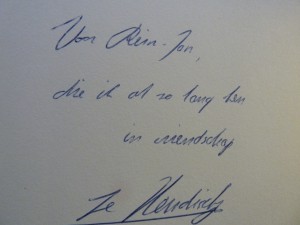 Voor Rein-Jan,
die ik al zo lang ken
in vriendschap
Je